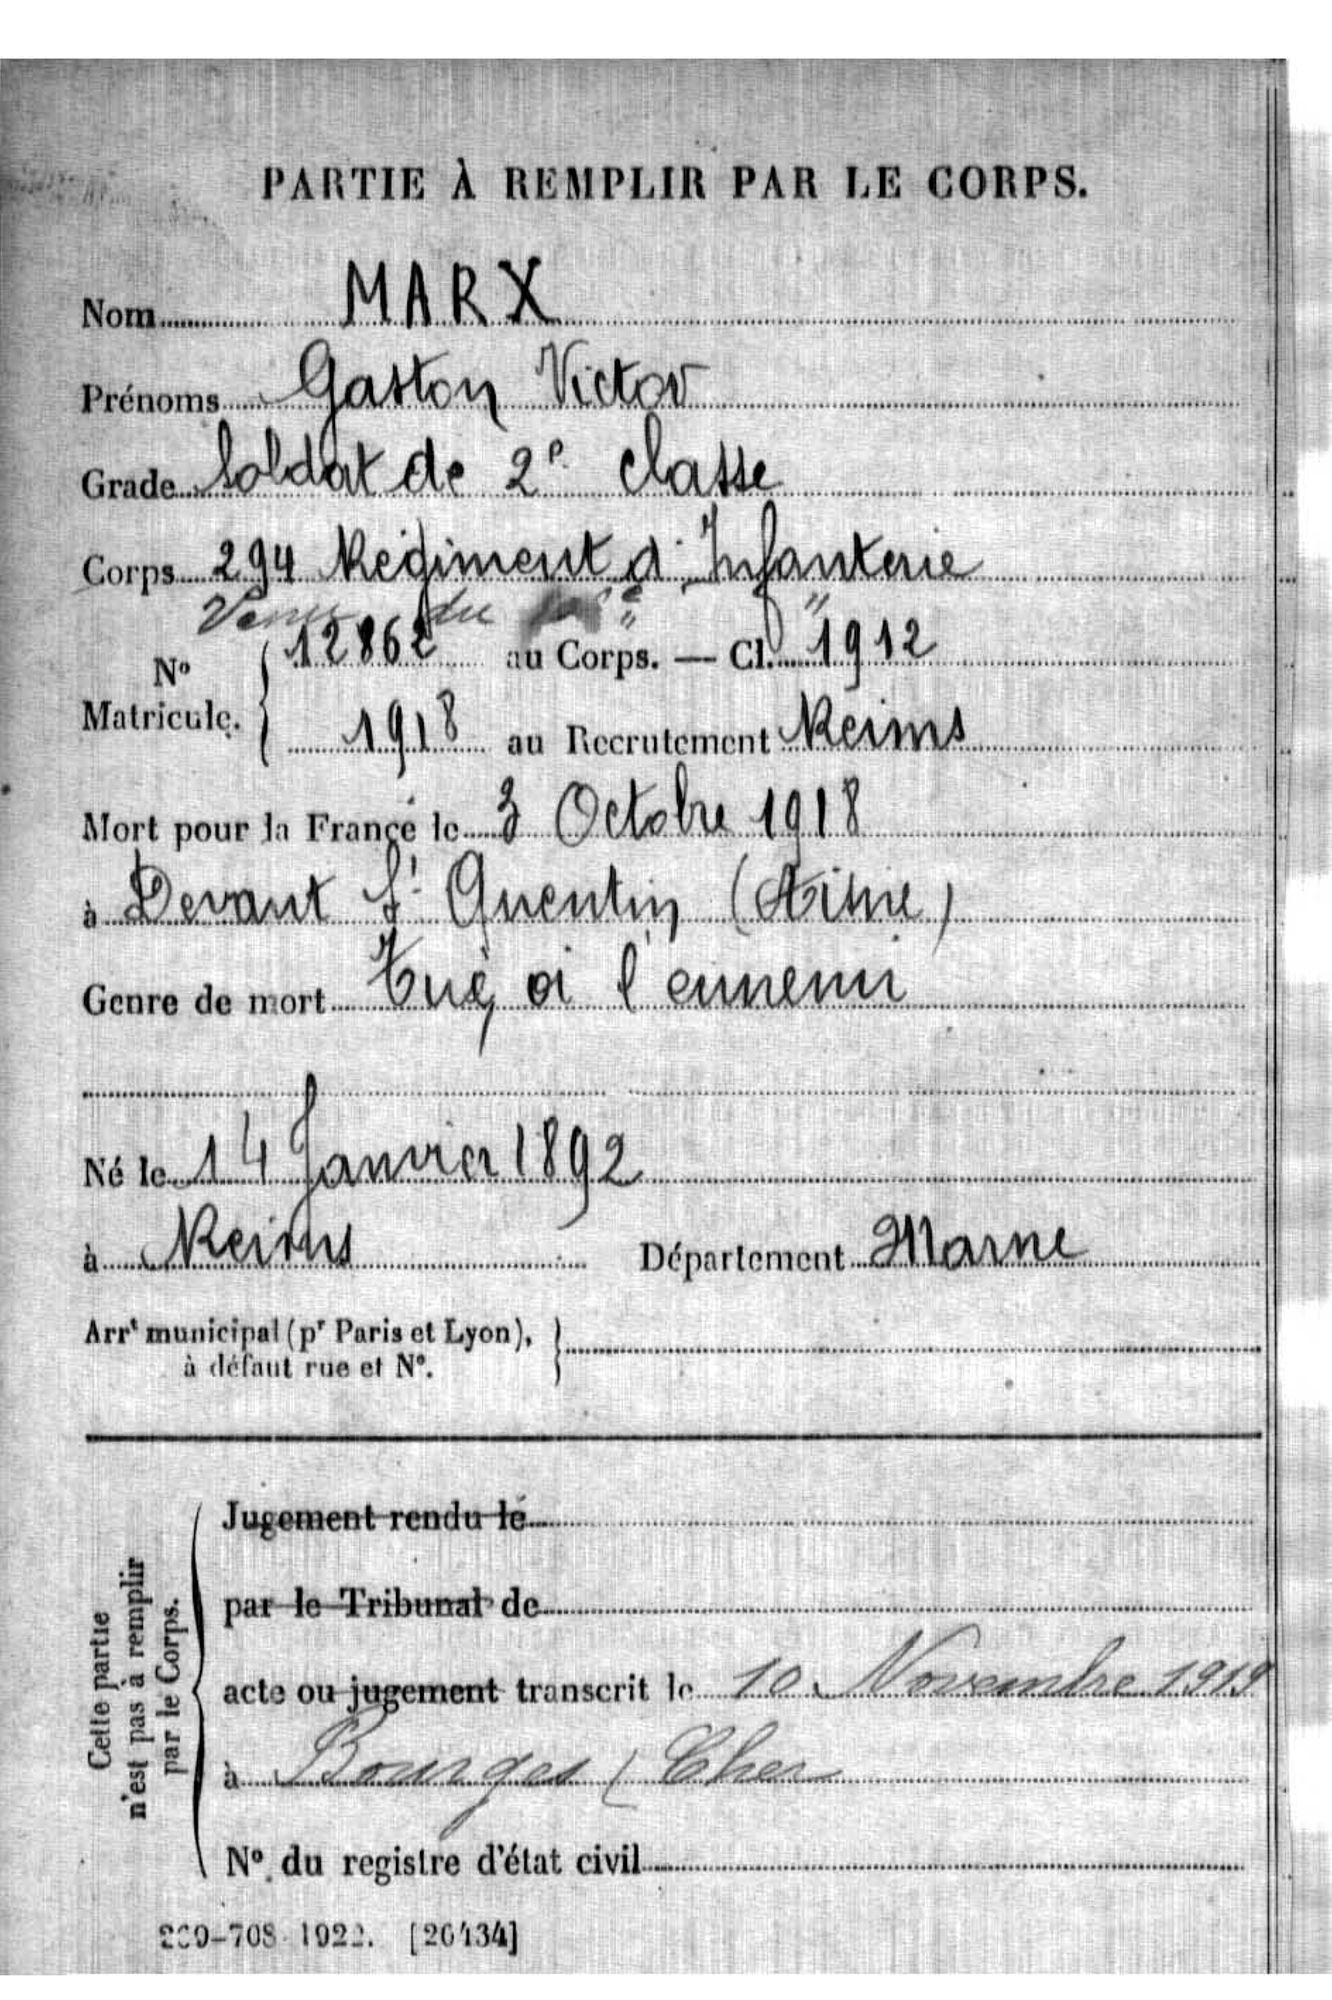 PARTIE À REMPLIR PAR LE CORPS.
Nom MARX
Prénoms Gaston Victor
Grade Soldat de 2e classe
Corps 294 Régiment d'Infanterie
Venu du
N° Matricule. 12862 au Corps. — Cl. 1912
1918 au Recrutement Reims
Mort pour la France le 3 Octobre 1918
à Devant St Quentin (Aisne)
Genre de mort Tué à l'ennemi
Né le 14 Janvier 1892
à Reims Département Marne
Arrt municipal (pr Paris et Lyon),
à défaut rue et N°.
Cette partie
n'est pas à remplir
par le Corps.
Jugement rendu le
par le Tribunal de
acte ou jugement transcrit le 10 Novembre 1919
à Bourges (Cher
N°. du registre d'état civil
[26434]